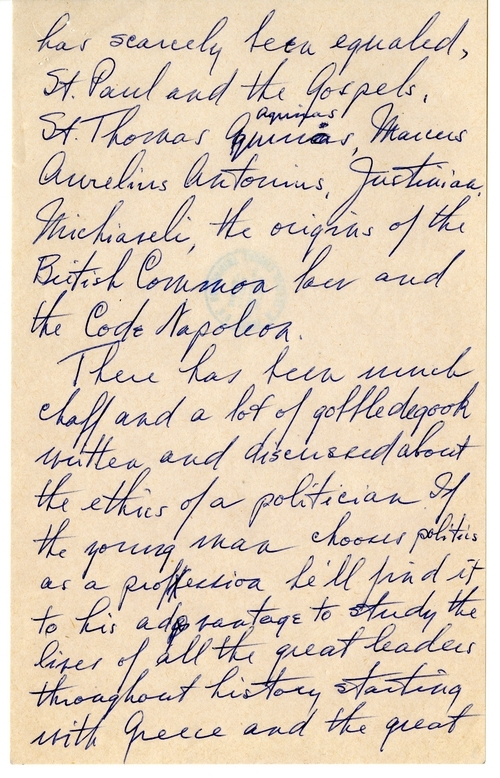 has scarcely been equaled,
St. Paul and the Gospels,
Aquinas
St. Thomas Aquinas, Marcus
Aurelius Antonius, Justinian,
Michiaveli, the origins of the
British Common law and
the Code Napoleon.
There has been much
chaff and a lot of gobbledegook
written and discussed about
the ethics of a politician. If
the young man chooses politics
as a proffession he'll find it
to his advantage to study the
lives of all the great leaders
throughout history starting
with Greece and the great